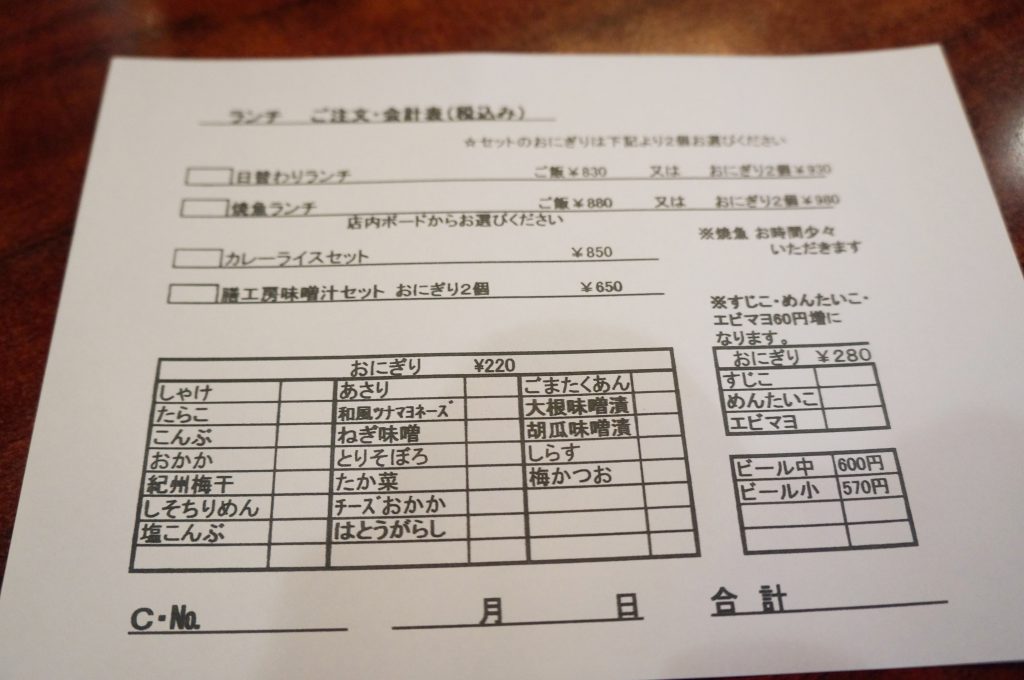 ランチ ご注文・会計表(税込み)
☆セットのおにぎりは下記より2個お選びください
日替わりランチ ご飯¥830 又は おにぎり2個¥930
焼魚ランチ ご飯¥880 又は おにぎり2個¥980
店内ボードからお選びください
※焼魚 お時間少々
いただきます
カレーライスセット ¥850
膳工房味噌汁セット おにぎり2個 ¥650
※すじこ・めんたいこ・
エビマヨ60円増に
なります。
おにぎり ¥220
しゃけ あさり ごまたくあん
たらこ 和風ツナマヨネーズ 大根味噌漬
こんぶ ねぎ味噌 胡瓜味噌漬
おかか とりそぼろ しらす
紀州梅干 たか菜 梅かつお
しそちりめん チーズおかか
塩こんぶ はとうがらし
おにぎり ¥280
すじこ
めんたいこ
エビマヨ
ビール中 600円
ビール小 570円
C・№ 月 日 合計